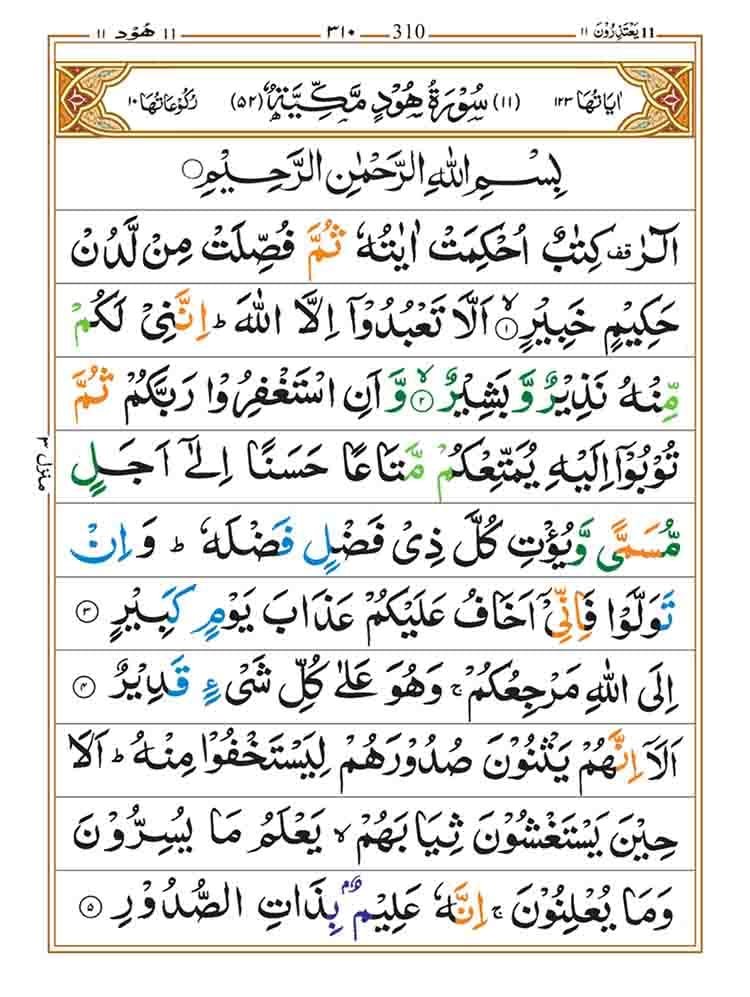 يَعْتَذِرُوْنَ ١١ ٣١٠ 310 هُوْد ١١
اٰيَاتُهَا ١٢٣ (١١) سُوْرَةُ هُوْدٍ مَّكِّيَّةٌ (٥٢) رُكُوْعَاتُهَا ١٠
بِسْمِ اللهِ الرَّحْمٰنِ الرَّحِيْمِ
الٓرٰ قف كِتٰبٌ اُحْكِمَتْ اٰيٰتُهٗ ثُمَّ فُصِّلَتْ مِنْ لَّدُنْ
حَكِيْمٍ خَبِيْرٍ ۙ﴿١﴾ اَلَّا تَعْبُدُوْۤا اِلَّا اللهَ ؕ اِنَّنِيْ لَكُمْ
مِّنْهُ نَذِيْرٌ وَّبَشِيْرٌ ۙ﴿٢﴾ وَّاَنِ اسْتَغْفِرُوْا رَبَّكُمْ ثُمَّ
تُوْبُوْۤا اِلَيْهِ يُمَتِّعْكُمْ مَّتَاعًا حَسَنًا اِلٰۤى اَجَلٍ
مُّسَمًّى وَّيُؤْتِ كُلَّ ذِيْ فَضْلٍ فَضْلَهٗ ؕ وَاِنْ
تَوَلَّوْا فَاِنِّيْۤ اَخَافُ عَلَيْكُمْ عَذَابَ يَوْمٍ كَبِيْرٍ ﴿٣﴾
اِلَى اللهِ مَرْجِعُكُمْ ۚ وَهُوَ عَلٰى كُلِّ شَيْءٍ قَدِيْرٌ ﴿٤﴾
اَلَاۤ اِنَّهُمْ يَثْنُوْنَ صُدُوْرَهُمْ لِيَسْتَخْفُوْا مِنْهُ ؕ اَلَا
حِيْنَ يَسْتَغْشُوْنَ ثِيَابَهُمْ ۙ يَعْلَمُ مَا يُسِرُّوْنَ
وَمَا يُعْلِنُوْنَ ۚ اِنَّهٗ عَلِيْمٌۢ بِذَاتِ الصُّدُوْرِ ﴿٥﴾
منزل ٣